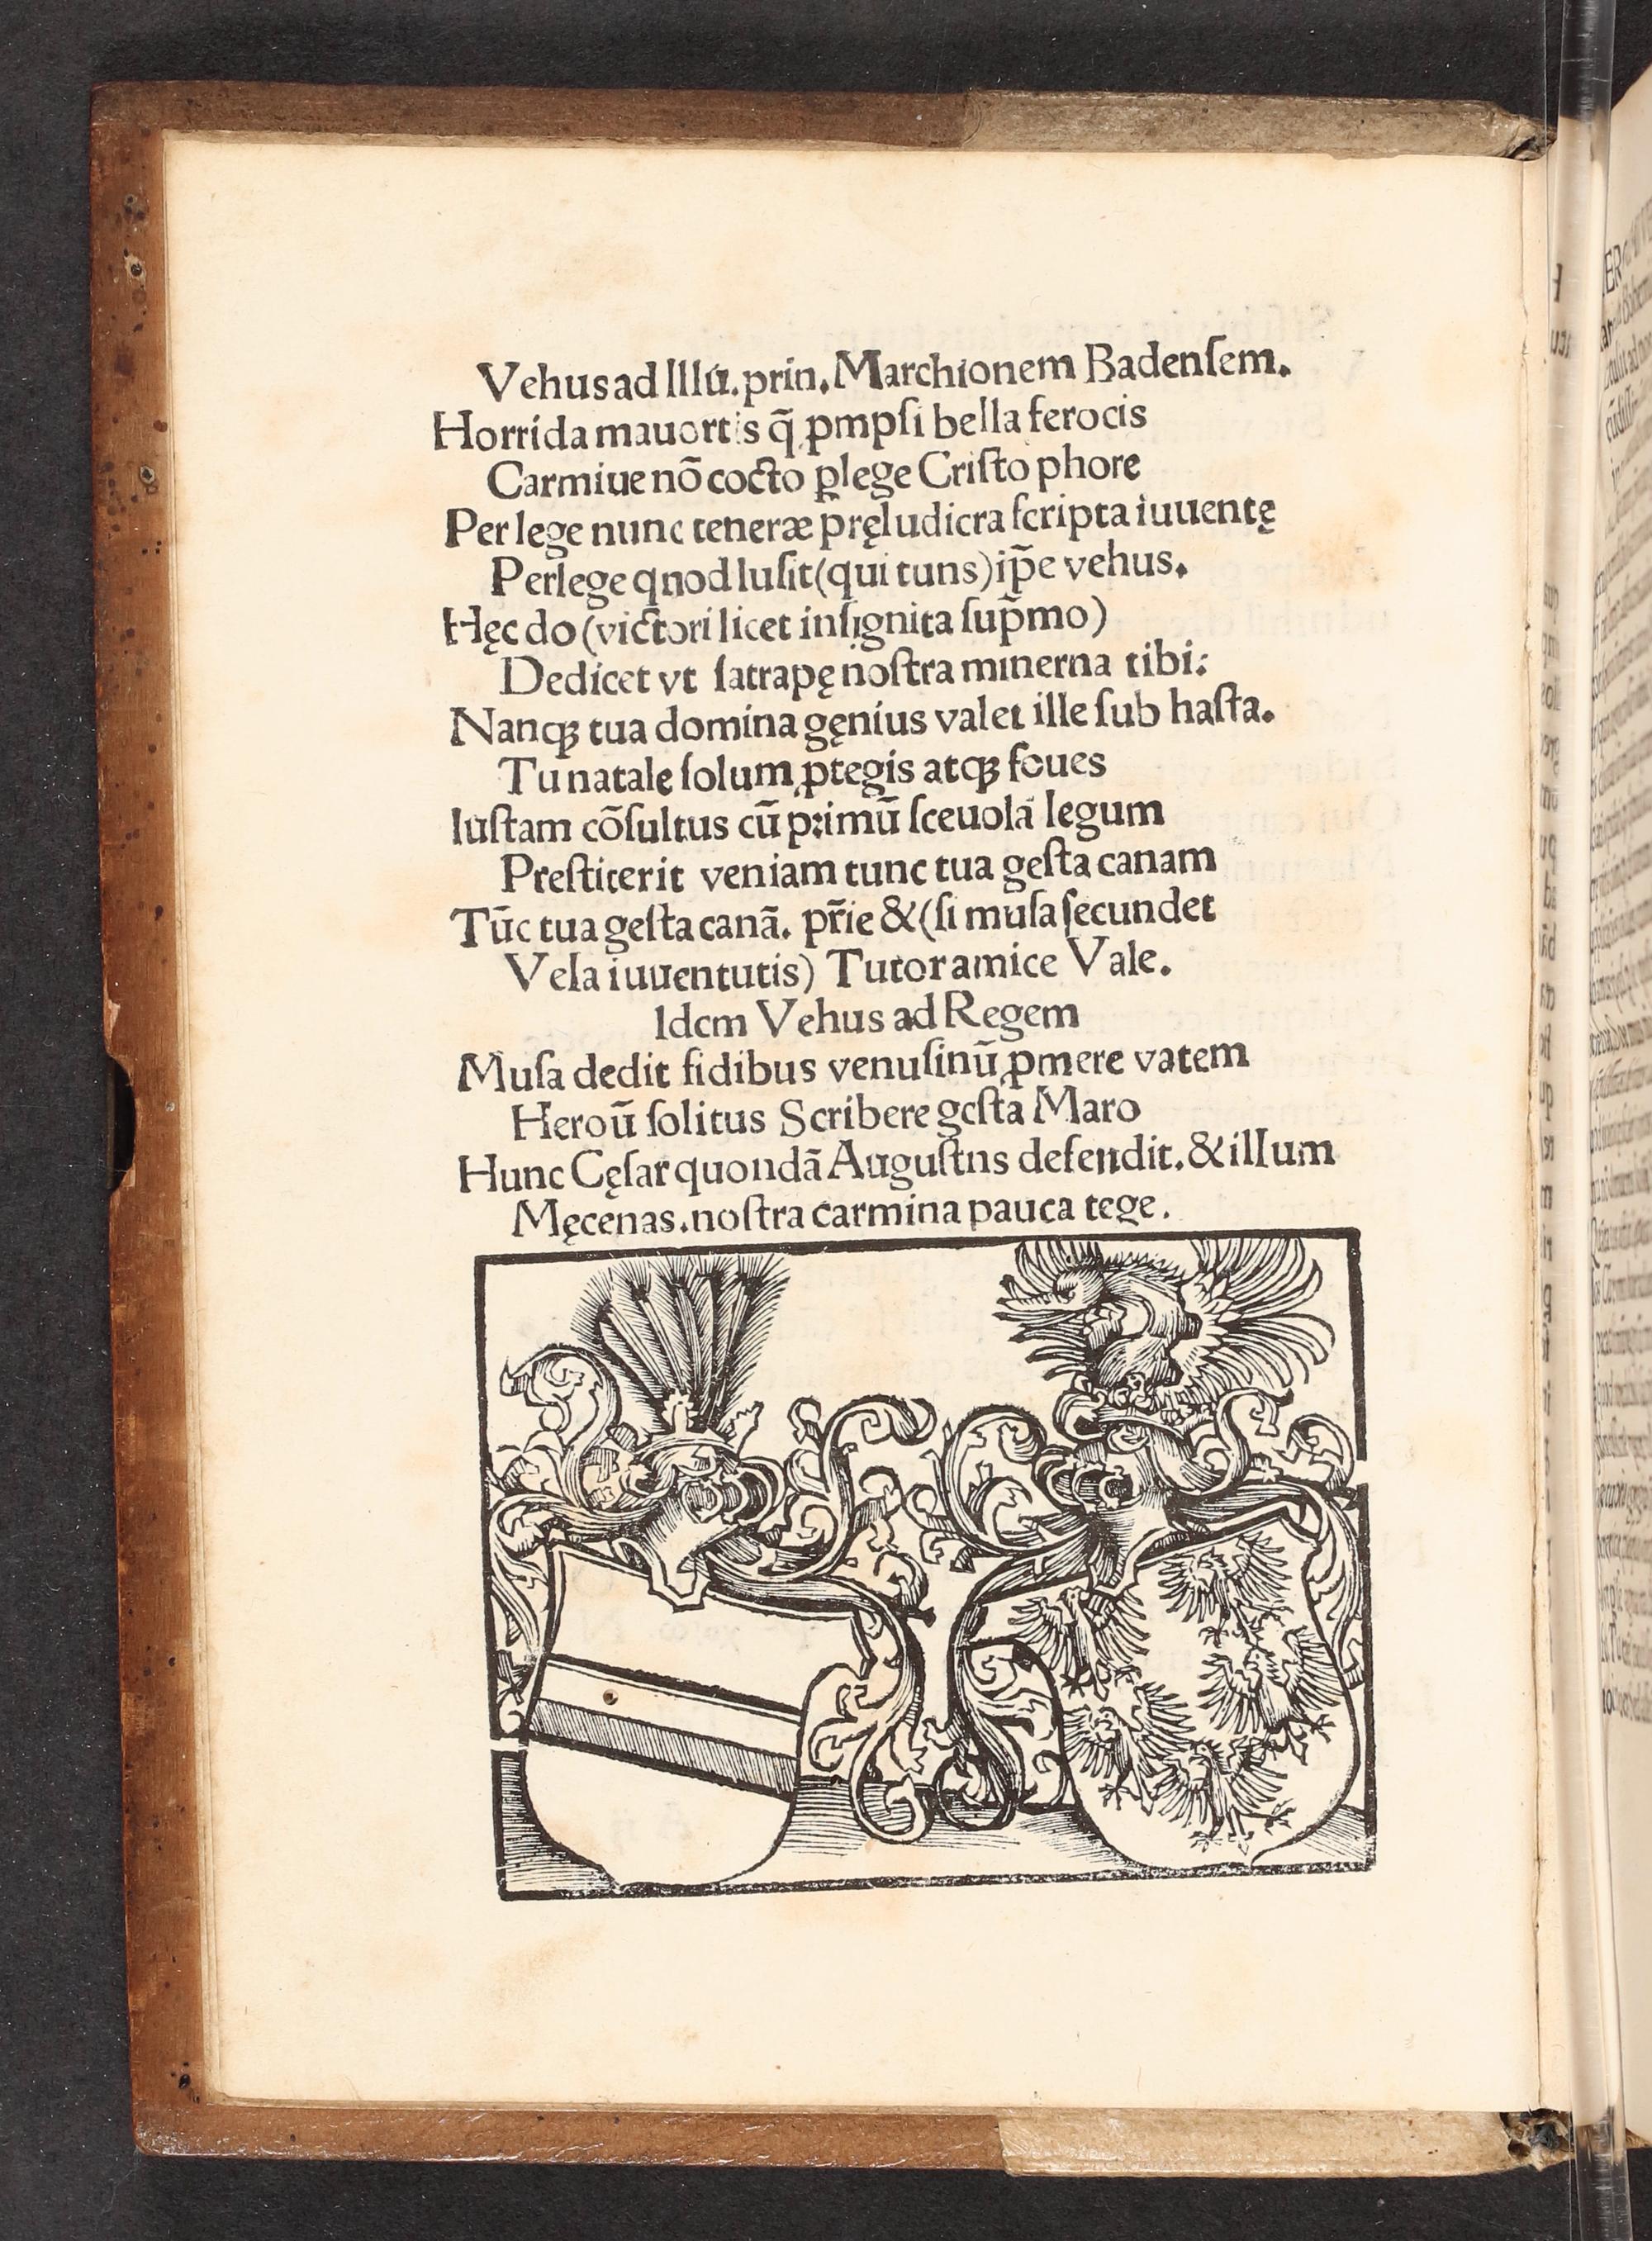 Vehus ad Illū. prin. Marchionem Badenſem.
Horrida mauortis q̄ ꝓmpſi bella ferocis
Carmiue nō cocto ꝑlege Criſto phore
Per lege nunc teneræ pręludicra ſcripta iuuentę
Perlege qnod luſit (qui tuns) ip̄e vehus.
Hęc do (victori licet inſignita ſup̄mo)
Dedicet vt ſatrapę noſtra minerna tibi:
Nanqꝫ tua domina gęnius valet ille ſub haſta.
Tu natale ſolum ꝓtegis atqꝫ foues
Iuſtam cōſultus cū primū ſceuolā legum
Preſtiterit veniam tunc tua geſta canam
Tūc tua geſta canā. pr̄ie & (ſi muſa ſecundet
Vela iuuentutis) Tutor amice Vale.
Idem Vehus ad Regem
Muſa dedit fidibus venuſinū ꝓmere vatem
Heroū ſolitus Scribere geſta Maro
Hunc Cęſar quondā Auguſtns defendit. & illum
Męcenas. noſtra carmina pauca tege.